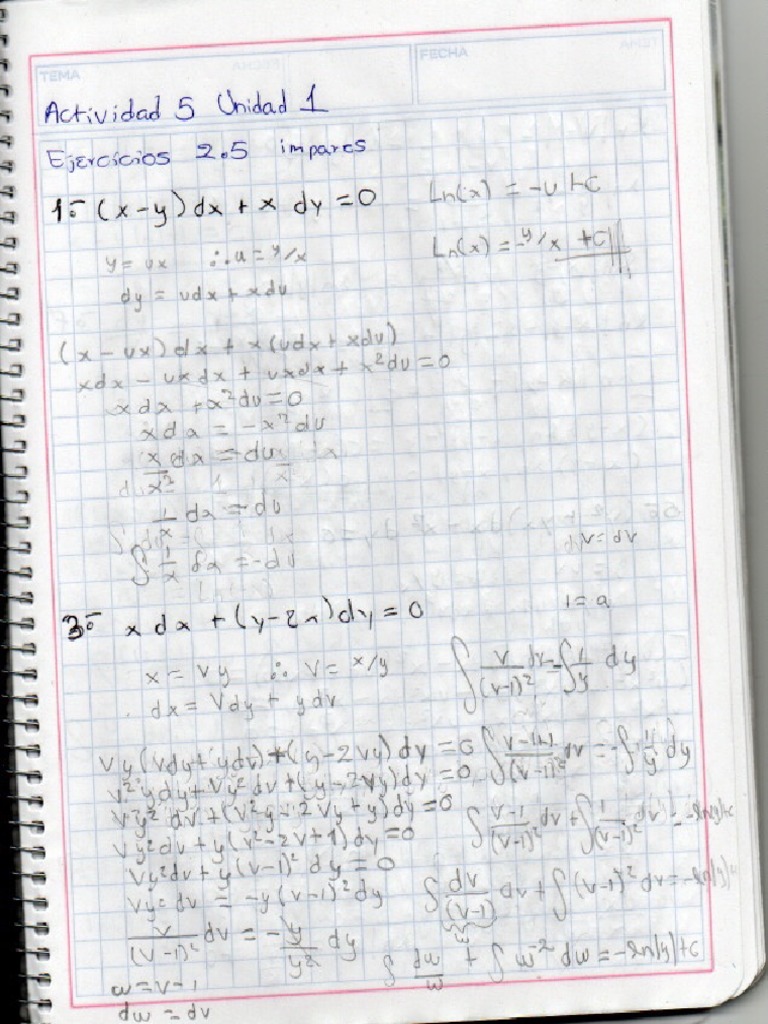 TEMA
FECHA
Actividad 5 Unidad 1
Ejercicios 2.5 impares
1.- (x-y)dx + x dy = 0
y = ux ∴ u = y/x
dy = udx + xdu
(x - ux)dx + x(udx + xdu)
xdx - uxdx + uxdx + x²du = 0
xdx + x²du = 0
xdx = -x²du
x/x² dx = -du
1/x dx = -du
∫ 1/x dx = -du
Ln(x) = -u + c
Ln(x) = -y/x + C
3.- x dx + (y-2x)dy = 0
x = vy ∴ v = x/y
dx = Vdy + ydv
vy(vdy + ydv) + (y - 2vy)dy = 0
v²ydy + vy²dv + (y - 2vy)dy = 0
vy²dv + (v²y - 2vy + y)dy = 0
vy²dv + y(v² - 2v + 1)dy = 0
vy²dv + y(v-1)² dy = 0
vy² dv = -y(v-1)² dy
v/(v-1)² dv = - y/y² dy
w = v - 1
dw = dv
dv = dv
1 = a
∫ v/(v-1)² dv = ∫ 1/y dy
∫ v-1+1/(v-1)² dv = -∫ 1/y dy
∫ v-1/(v-1)² dv + ∫ 1/(v-1)² dv = -ln|y|+c
∫ dv/(v-1) dv + ∫ (v-1)⁻² dv = -ln|y|+c
w
∫ dw/w + ∫ w⁻² dw = -ln|y|+c